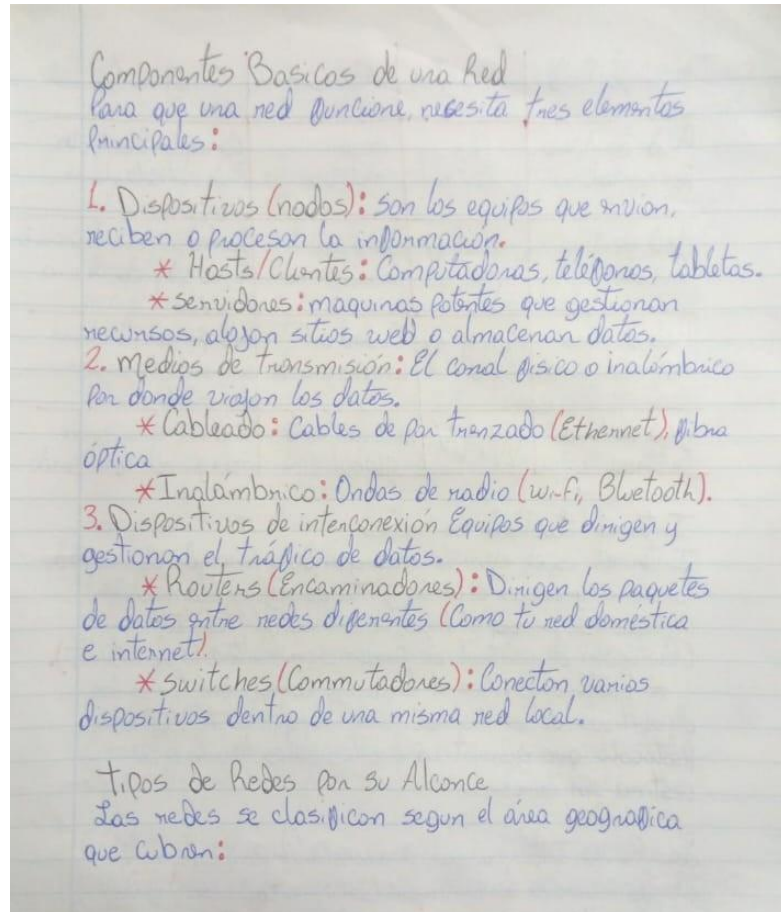 Componentes Basicos de una Red
Para que una red funcione, necesita tres elementos
Principales:
1. Dispositivos (nodos): son los equipos que envian,
reciben o procesan la información.
* Hosts/Clientes: Computadoras, teléfonos, tabletas.
* servidores: maquinas potentes que gestionan
recursos, alojan sitios web o almacenan datos.
2. medios de transmisión: El canal fisico o inalámbrico
por donde viajan los datos.
* Cableado: Cables de par trenzado (Ethernet), fibra
óptica
* Inalámbrico: Ondas de radio (wi-fi, Bluetooth).
3. Dispositivos de interconexión Equipos que dirigen y
gestionan el tráfico de datos.
* Routers (Encaminadores): Dirigen los paquetes
de datos entre redes diferentes (Como tu red doméstica
e internet).
* switches (Commutadores): Conectan varias
dispositivos dentro de una misma red local.
tipos de Redes por su Alcance
Las redes se clasifican segun el área geografica
que cubren: